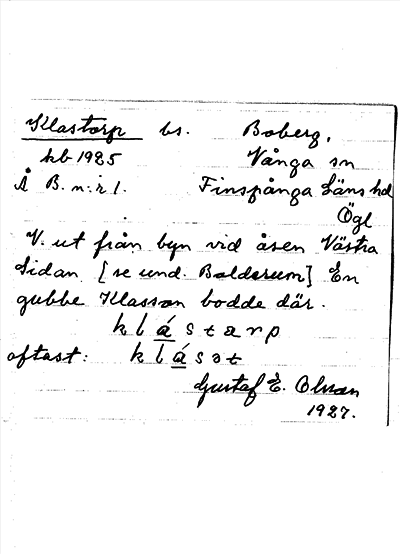 Klastorp bs. Boberg,
kb 1925 Vånga sn
Å B. n:r 1. Finspånga Läns hd
Ögl
V. ut från byn vid åsen Västra
Sidan [se und. Balderum] En
gubbe Klasson bodde där.
klástarp
oftast: klásət
Gustaf E. Olsson
1927.